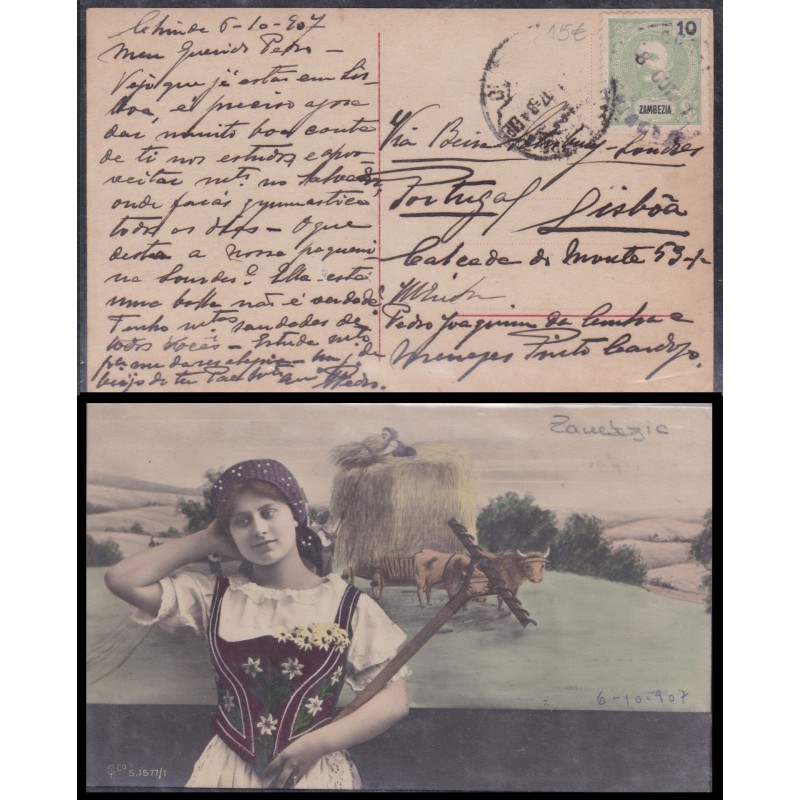 Chinde 6-10-907
Meu Querido Pedro —
Vejo que já estás em Lis-
bôa, é preciso agora
dar muito boa conta
de ti nos estudos e apro-
veitar no Salvador
onde farás gymnastica
todos os dias — O que
dizes a nossa pequeni-
na Lourdes? Ella está
uma bolla não é verdade?
Tenho mtas saudades de
todos vocês — Estuda mto
para me dares alegria — Um
beijo de teu Pae
Pedro.
15€
10
ZAMBEZIA
Via Beira Londres
Portugal
Lisbôa
Calçada do Monte 53-1º
Pedro Joaquim da Cunha e
Menezes Pinto Cardoso.
Zambezia
6-10-907
Co
S.1577/1